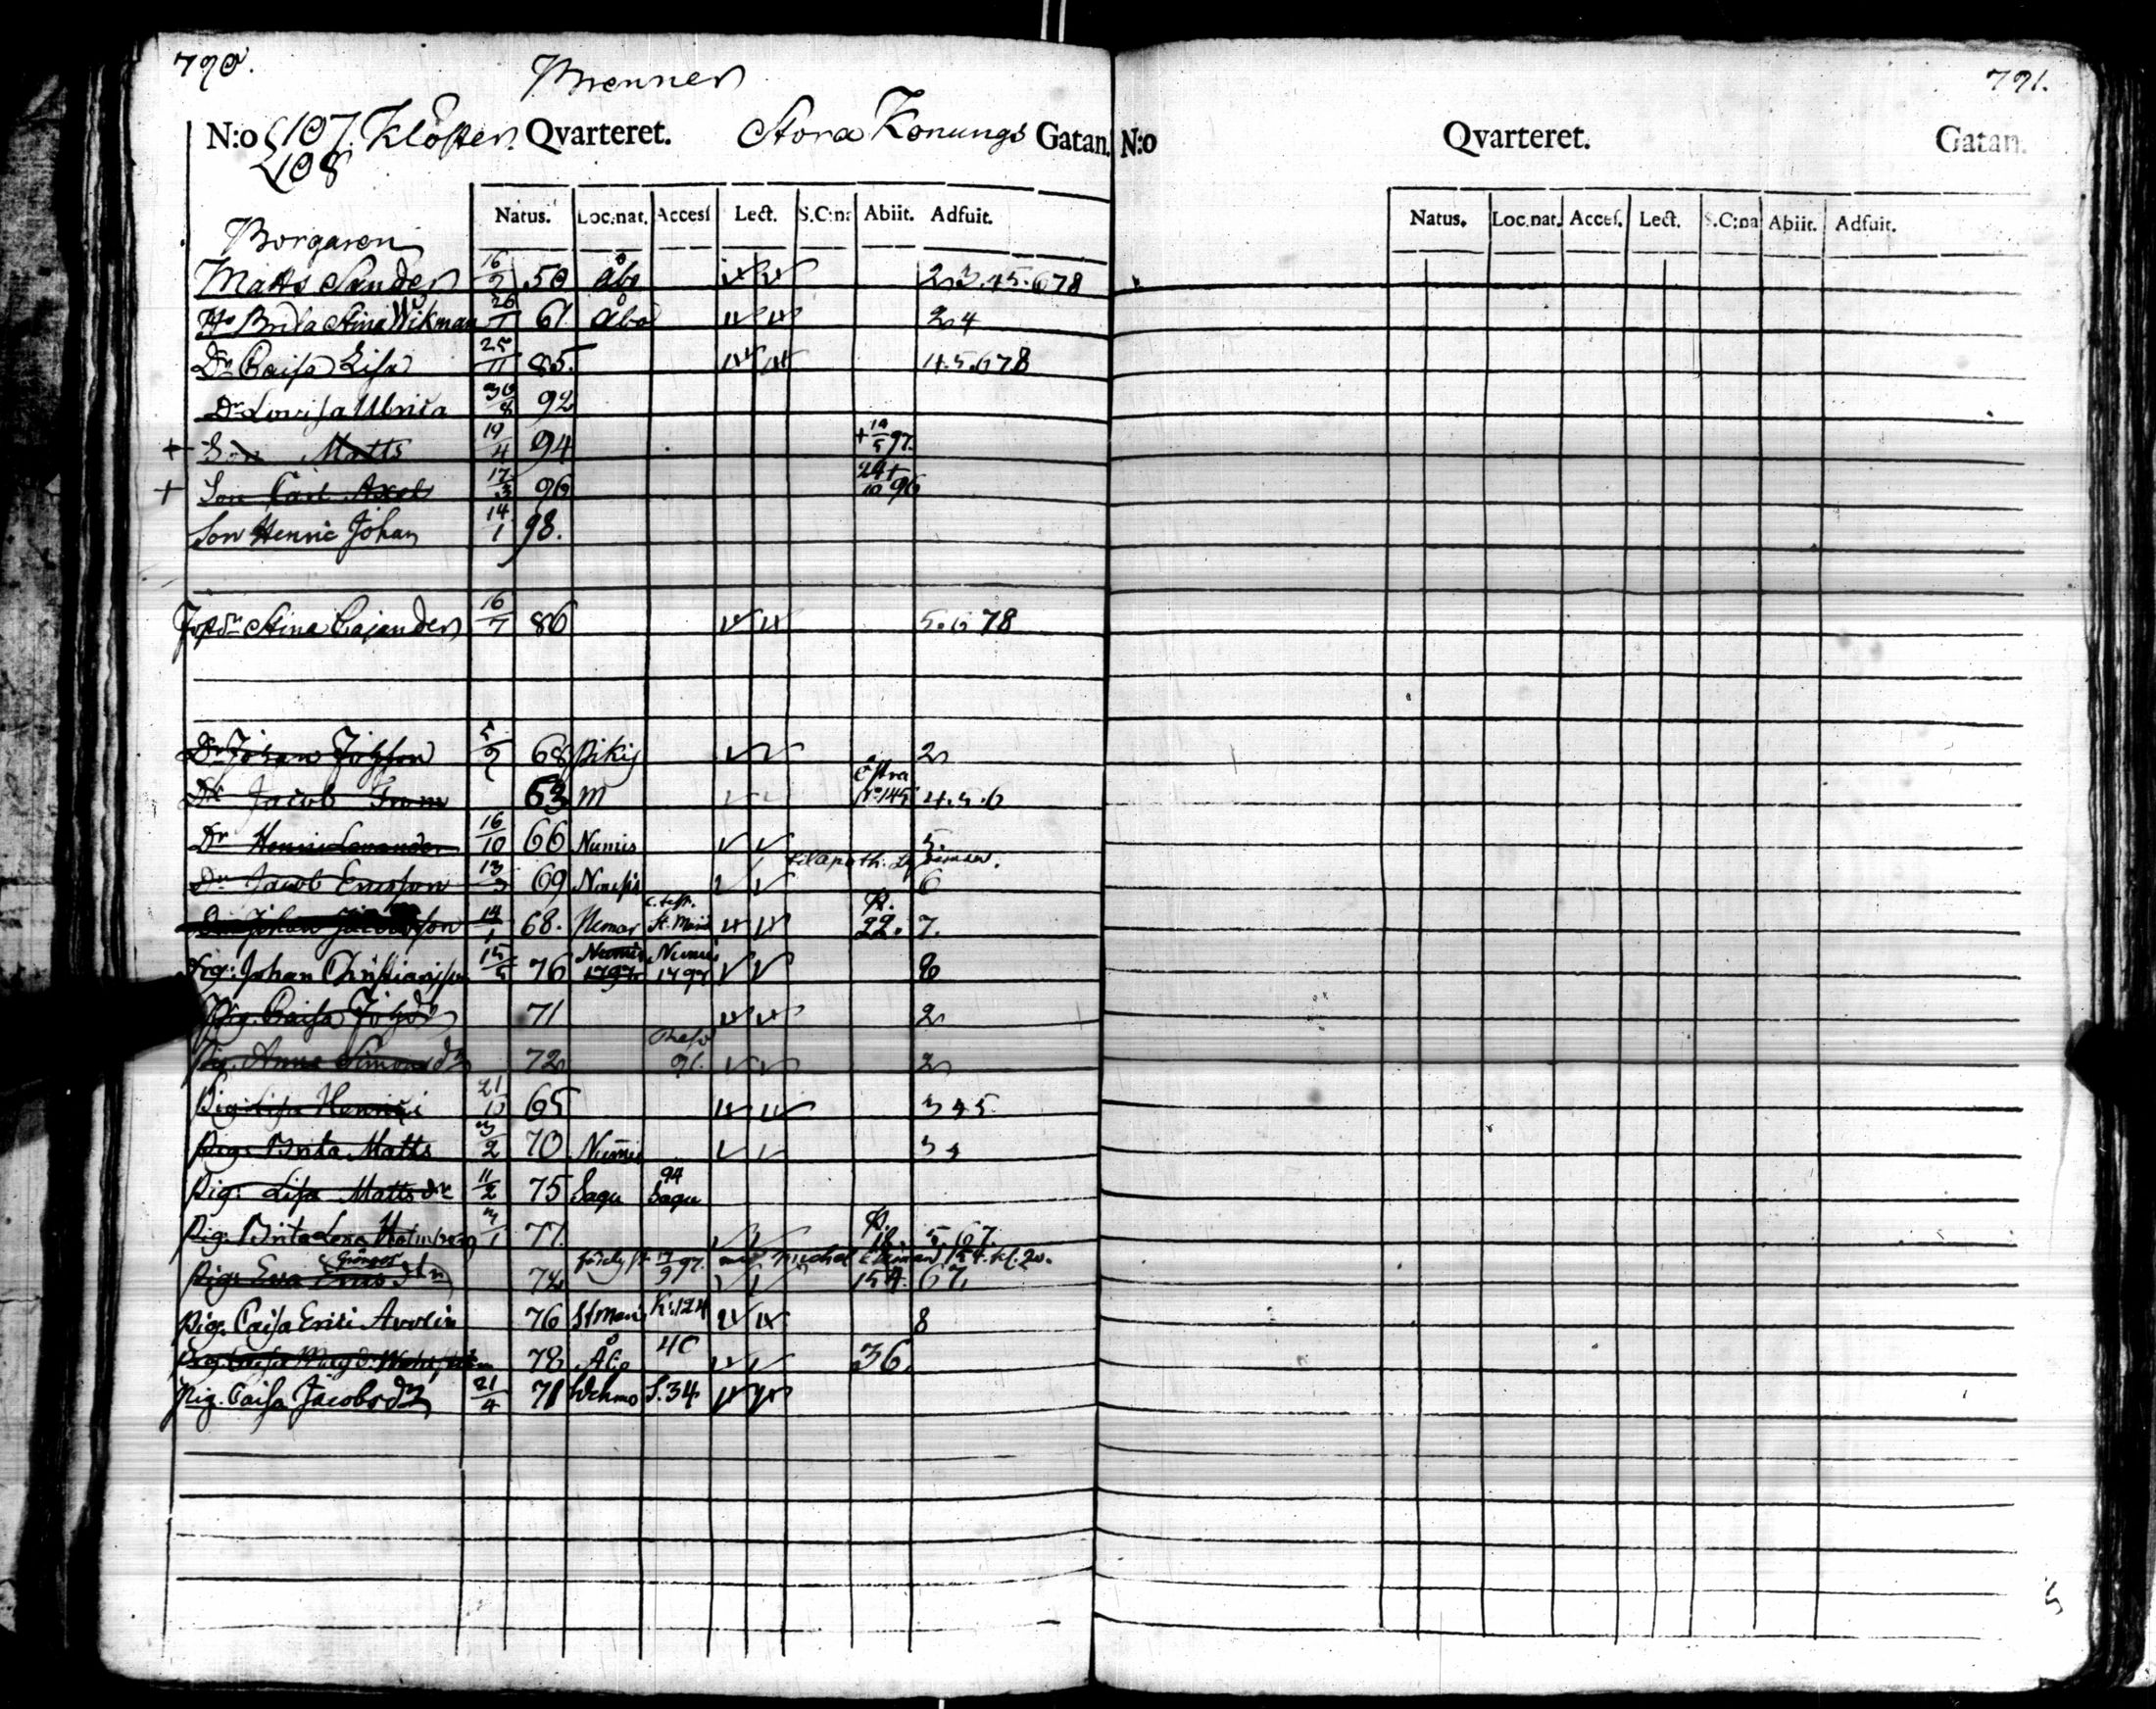 790.
Brenner
N:o 107. Klöster Qvarteret. Stora Konungs Gatan.
108
Natus. Loc.nat. Access Lect. S.C:na Abiit. Adfuit.
Borgaren
Matts Sander 16/2 50 Åbo 2.3.45.678
Brita Stina Wikman 26/1 61 Åbo 2 4
Dr Caisa Lisa 25/11 85. 4.5.678
Dr Lovisa Ulrica 30/8 92
+ Son Matts 19/4 94 + 14/5 97.
+ Son Carl Axel 17/3 96 24/10 + 96
Son Henric Johan 14/1 98.
Stina Cajander 16/7 86 5.6 78
Dr Johan Johsson 5/2 68 Pikis 2
Östra
Dr Jacob 63 No 145 4.5.6
Dr Henric 16/10 66 Numis 5.
Dr Jacob Ericsson 13/3 69 6
Dr Johan Jacobsson 14/1 68. Nemar St. Marie 22. 7.
Drg: Johan Christiansson 15/5 76 Numis 1797 Numis 1797 8
Pig. Caisa Johsdr 71 2
Pig. Anna Simonsdr 72 91. 2
Pig: Lisa Henrici 21/10 65 3 4 5
Pig: Brita Matts 3/2 70 Numis 3 4
Pig: Lisa Mattsdr 11/2 75 Sagu 94 Sagu
Pig: Brita Lena Holmberg 3/1 77. 18. 5.67.
Pig: Eva Erics dtr 72 154. 67.
Pig. Caisa Erici Avolin 76 St Mari K:124 8
78 Åbo 40 36.
Pig. Caisa Jacobsdr 21/4 71 Wehmo S.34
791.
N:o Qvarteret. Gatan.
Natus. Loc.nat. Acces. Lect. S.C:na Abiit. Adfuit.